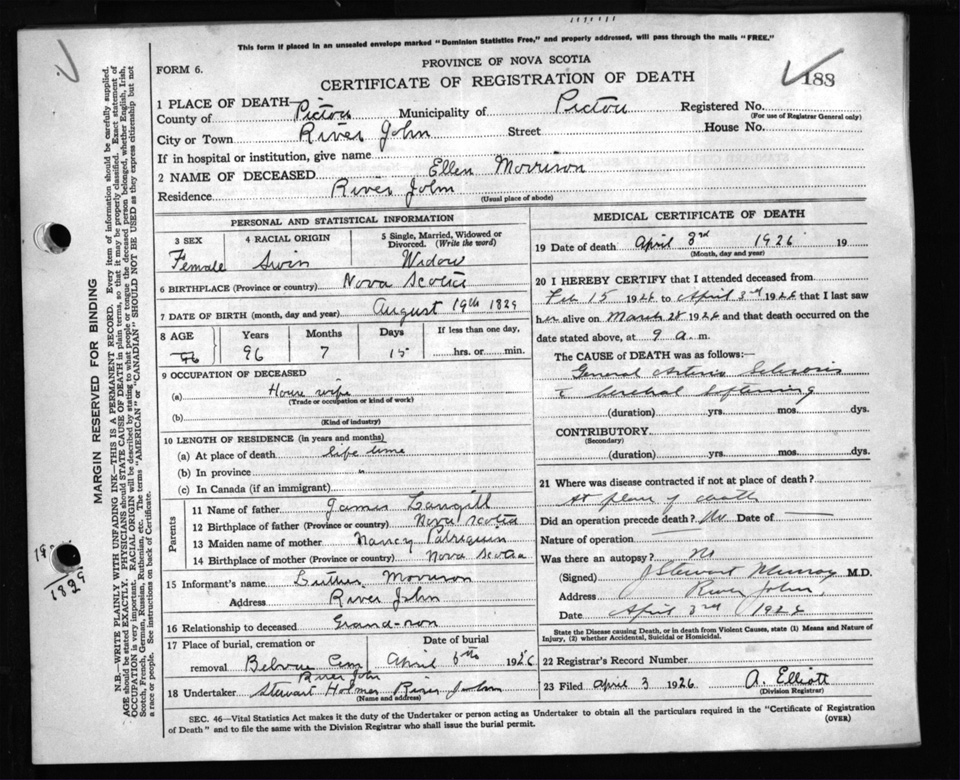 This form if placed in an unsealed envelope marked "Dominion Statistics Free," and properly addressed, will pass through the mails "FREE."
FORM 6.
PROVINCE OF NOVA SCOTIA
CERTIFICATE OF REGISTRATION OF DEATH
188
1 PLACE OF DEATH—
County of Pictou Municipality of Pictou Registered No.
(For use of Registrar General only)
City or Town River John Street House No.
If in hospital or institution, give name
2 NAME OF DECEASED Ellen Morrison
Residence River John
(Usual place of abode)
PERSONAL AND STATISTICAL INFORMATION
3 SEX 4 RACIAL ORIGIN 5 Single, Married, Widowed or Divorced. (Write the word)
Female Swiss Widow
6 BIRTHPLACE (Province or country) Nova Scotia
7 DATE OF BIRTH (month, day and year) August 19th 1829
8 AGE Years Months Days If less than one day,
96 7 15 hrs. or min.
9 OCCUPATION OF DECEASED
(a) House wife
(Trade or occupation or kind of work)
(b)
(Kind of industry)
10 LENGTH OF RESIDENCE (in years and months)
(a) At place of death life time
(b) In province "
(c) In Canada (if an immigrant)
Parents
11 Name of father James Langill
12 Birthplace of father (Province or country) Nova Scotia
13 Maiden name of mother Nancy Patriquin
14 Birthplace of mother (Province or country) Nova Scotia
15 Informant's name Luther Morrison
Address River John
16 Relationship to deceased Grand-son
17 Place of burial, cremation or removal Date of burial
Belvue Cem April 5th 1926
River John
18 Undertaker Stewart Holmes River John
(Name and address)
MEDICAL CERTIFICATE OF DEATH
19 Date of death April 3rd 1926 19
(Month, day and year)
20 I HEREBY CERTIFY that I attended deceased from
Feb 15 1926 to April 3rd 1926 that I last saw
her alive on March 28 1926 and that death occurred on the
date stated above, at 9 a. m.
The CAUSE OF DEATH was as follows:—
General Arterio Sclerosis
Cerebral Softening
(duration) yrs. mos. dys.
CONTRIBUTORY
(Secondary)
(duration) yrs. mos. dys.
21 Where was disease contracted if not at place of death?
At place of death
Did an operation precede death? No Date of
Nature of operation
Was there an autopsy? No
(Signed) J Stewart Murray M.D.
Address River John
Date April 3rd 1926
State the Disease causing Death, or in death from Violent Causes, state (1) Means and Nature of
Injury, (2) whether Accidental, Suicidal or Homicidal.
22 Registrar's Record Number
23 Filed April 3 1926 A. Elliott
(Division Registrar)
SEC. 46—Vital Statistics Act makes it the duty of the Undertaker or person acting as Undertaker to obtain all the particulars required in the "Certificate of Registration
of Death" and to file the same with the Division Registrar who shall issue the burial permit.
(OVER)
MARGIN RESERVED FOR BINDING
N.B.—WRITE PLAINLY WITH UNFADING INK—THIS IS A PERMANENT RECORD. Every item of information should be carefully supplied.
AGE should be stated EXACTLY. PHYSICIANS should STATE CAUSE OF DEATH in plain terms, so that it may be properly classified. Exact statement of
OCCUPATION is very important. RACIAL ORIGIN will be described by stating to what people or tongue the deceased person belonged, whether English, Irish,
Scotch, French, German, Russian, Ruthenian, etc. The terms "AMERICAN" or "CANADIAN" SHOULD NOT BE USED as they express citizenship but not
a race or people. See instructions on back of Certificate.
1829